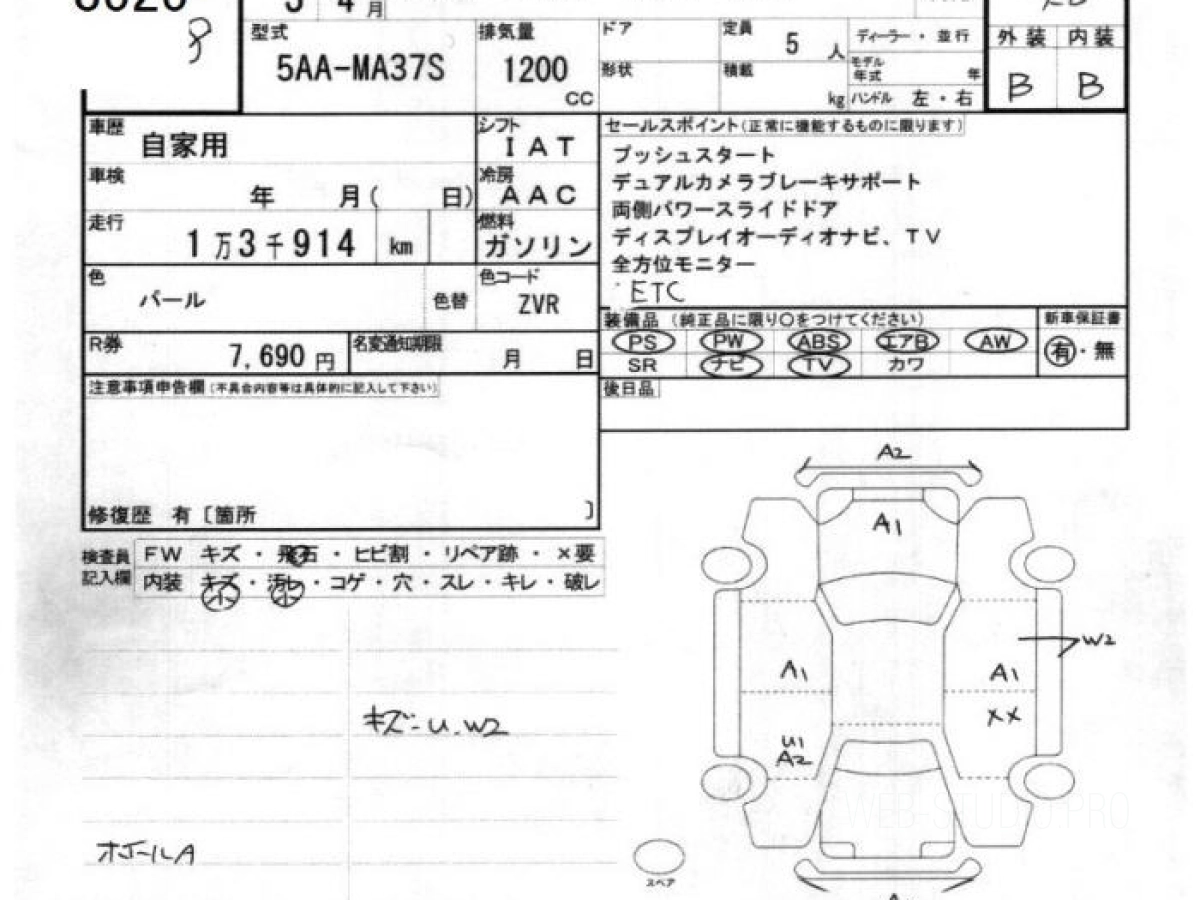 3 4 月
型式 5AA-MA37S
排気量 1200 CC
ドア
形状
定員 5 人
積載 kg
ディーラー・並行
モデル年式 年
ハンドル 左・右
外装 内装
B B
車歴 自家用
シフト IAT
車検 年 月( 日)
冷房 AAC
走行 1万3千914 km
燃料 ガソリン
色 パール
色替
色コード ZVR
R券 7,690 円
名変通知期限 月 日
セールスポイント(正常に機能するものに限ります)
プッシュスタート
デュアルカメラブレーキサポート
両側パワースライドドア
ディスプレイオーディオナビ、TV
全方位モニター
ETC
装備品 (純正品に限り○をつけてください)
PS PW ABS エアB AW
SR ナビ TV カワ
新車保証書
有・無
後日品
注意事項申告欄(不具合内容等は具体的に記入して下さい)
修復歴 有〔箇所 〕
検査員記入欄
FW キズ・飛石・ヒビ割・リペア跡・×要
内装 キズ・汚レ・コゲ・穴・スレ・キレ・破レ
小 小
キズ-U.W2
ホイールA
A2
A1
W2
A1 A1
XX
U1
A2
スペア
WEB-STUDIO.PRO